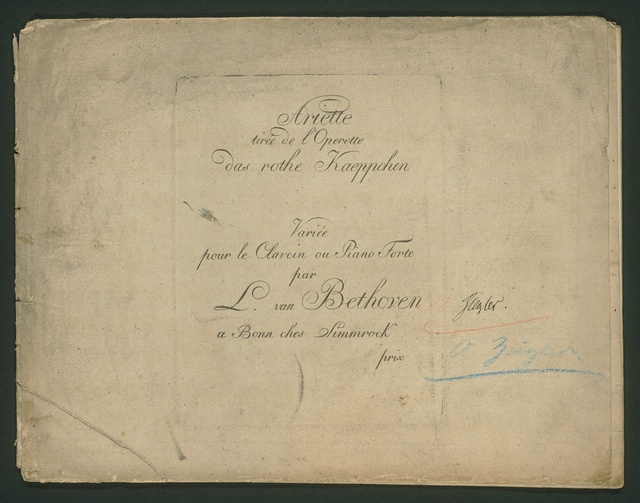 Ariette
tirée de l'Operette
das rothe Kaeppchen
Variée
pour le Clavcin ou Piano Forte
par
L. van Bethoven
Ziegler.
a Bonn ches Simmrock
prix